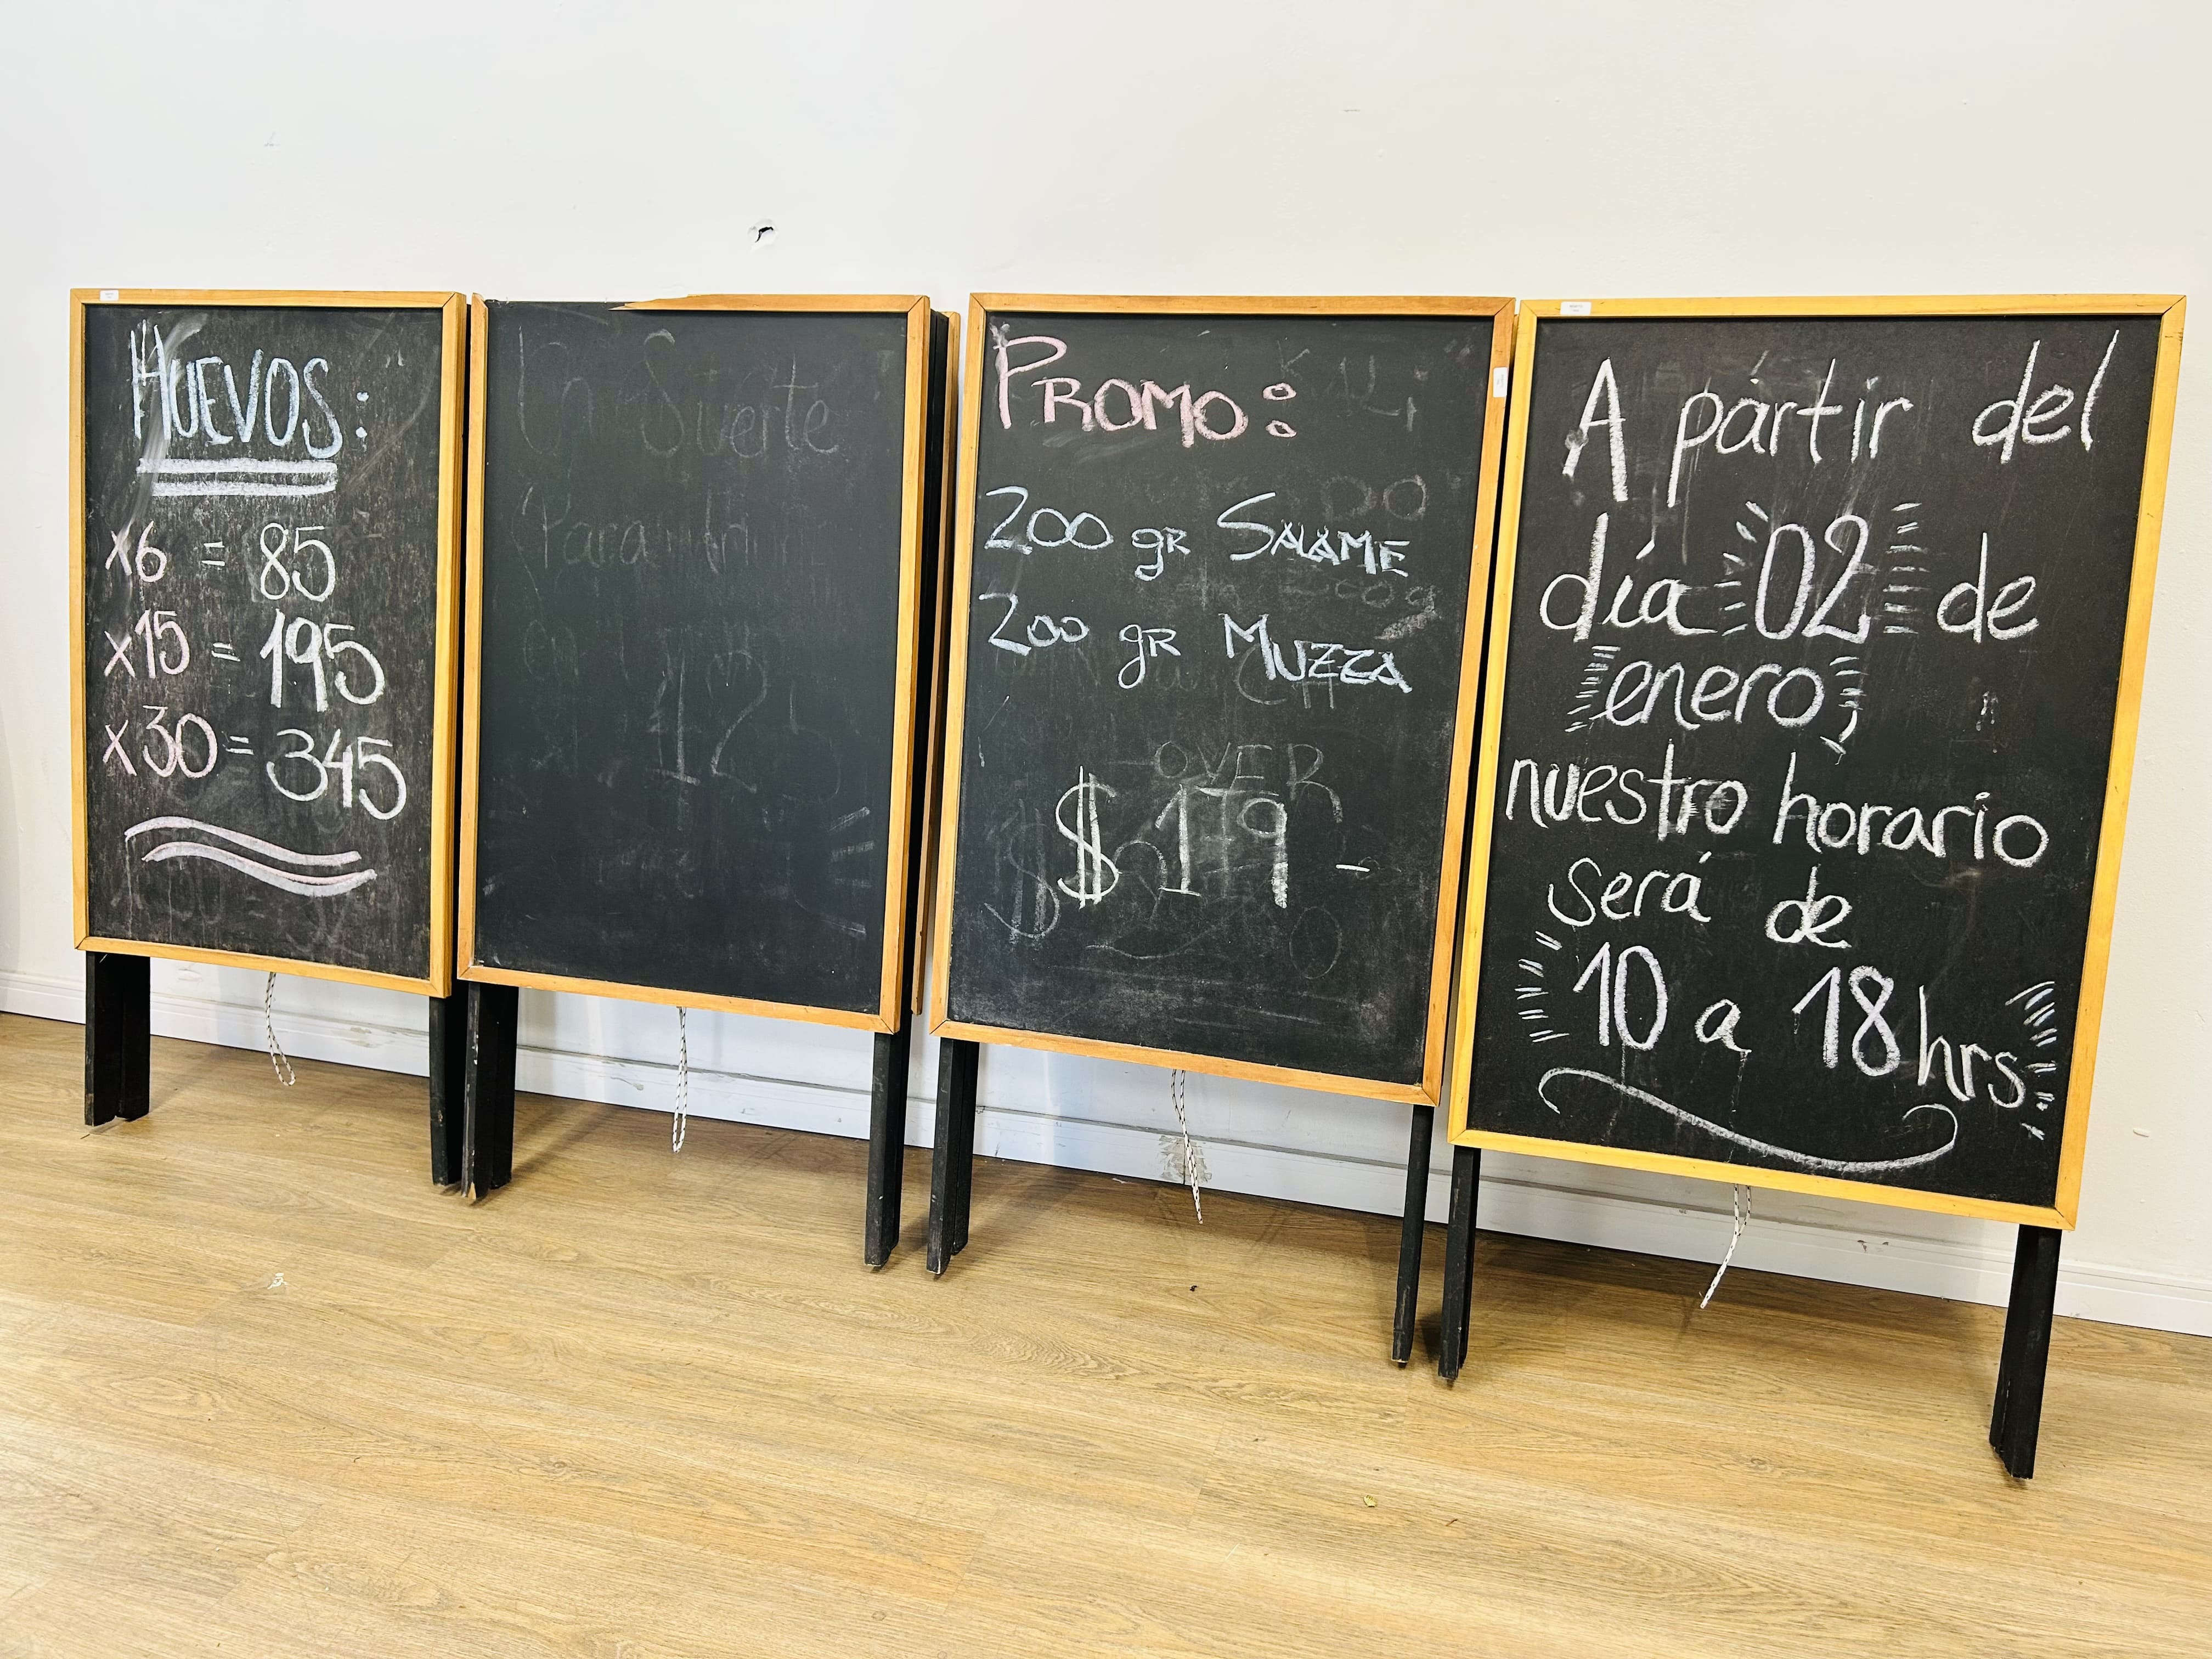 HUEVOS:
x6 = 85
x15 = 195
x30 = 345
La Suerte
Para
12
PROMO:
200 gR SALAME
200 gR MUZZA
OVER
$179-
A partir del
día 02 de
enero,
nuestro horario
será de
10 a 18hrs.